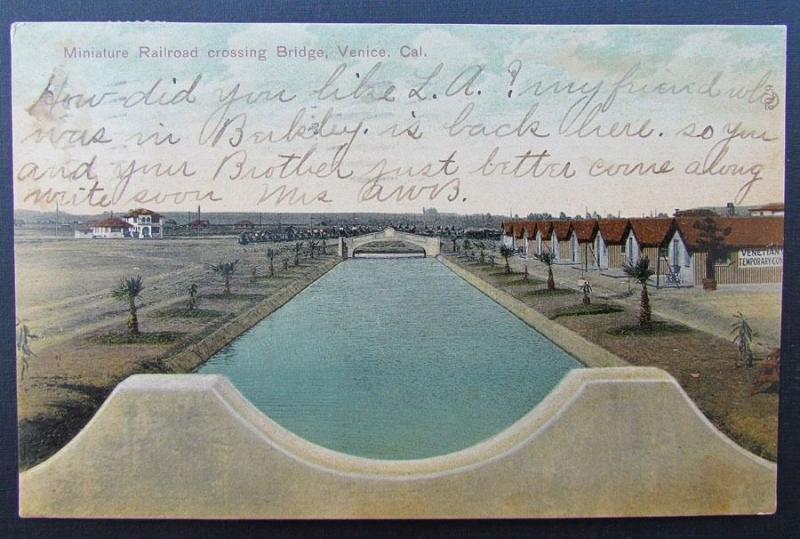 Miniature Railroad crossing Bridge, Venice, Cal.
How did you like L.A.? my friend who
was in Berkley. is back here. so you
and your Brother just better come along
write soon Mrs AWB.
6702
VENETIAN
TEMPORARY